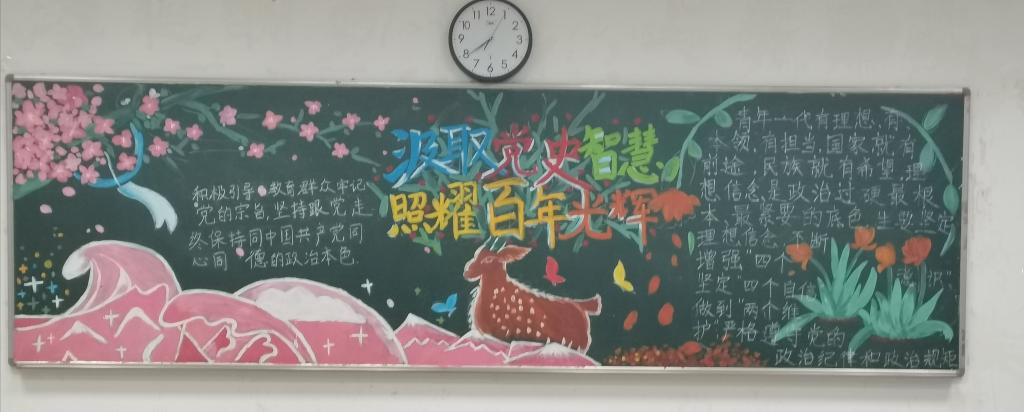 12
1
2
3
4
5
6
7
8
9
10
11
汲取党史智慧
照耀百年光辉
积极引导教育群众牢记
党的宗旨,坚持跟党走
终保持同中国共产党同
心同 德的政治本色.
青年一代有理想,有
本领,有担当,国家就有
前途,民族就有希望,理
想信念是政治过硬最根
本、最紧要的底色,生要坚定
理想信念,不断
增强"四个
坚定"四个自信
做到"两个维
护",严格遵守党的
政治纪律和政治规矩